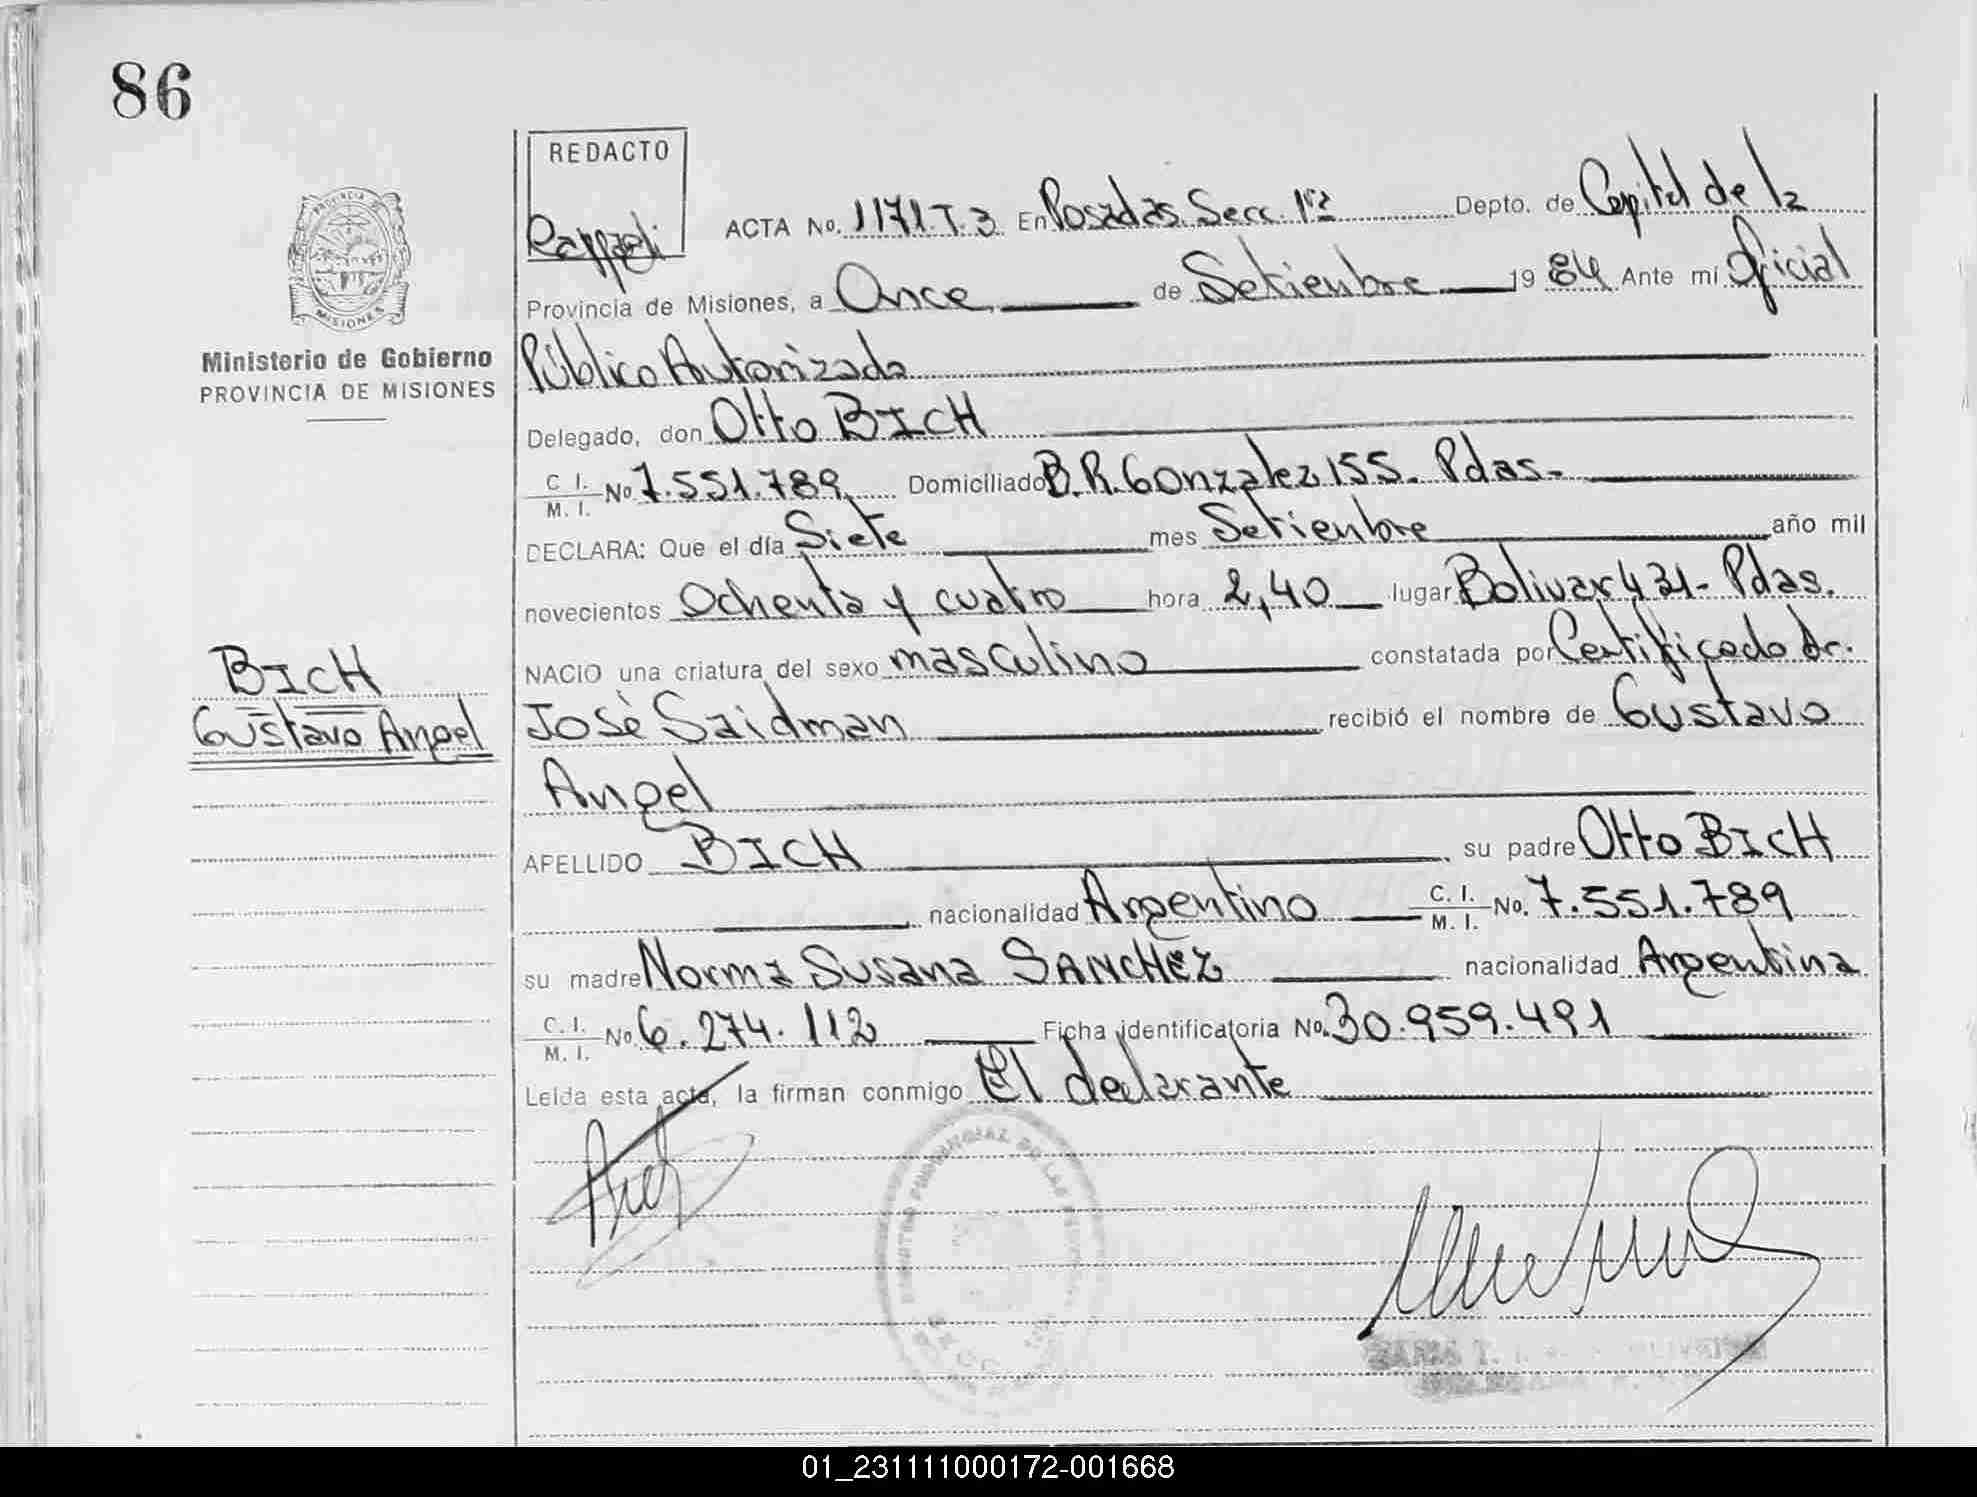 86
REDACTO
PROVINCIA DE
MISIONES
Ministerio de Gobierno
PROVINCIA DE MISIONES
ACTA No. 1171.T.3 En Posadas. Secc. 1ra Depto. de Capital de la
Provincia de Misiones, a Once de Setiembre 1984 Ante mí Oficial
Público Autorizado
Delegado, don Otto BICH
C. I.
M. I. No. 7.551.789 Domiciliado B.R. Gonzalez 155. Pdas-
DECLARA: Que el día Siete mes Setiembre año mil
novecientos Ochenta y cuatro hora 2,40 lugar Bolivar 431- Pdas.
NACIO una criatura del sexo masculino constatada por Certificado dr.
BICH
Gustavo Angel
José Saidman recibió el nombre de Gustavo
Angel
APELLIDO BICH su padre Otto BICH
nacionalidad Argentino C. I.
M. I. No. 7.551.789
su madre Norma Susana SANCHEZ nacionalidad Argentina
C. I.
M. I. No 6.274.112 Ficha identificatoria No. 30.959.491
Leída esta acta, la firman conmigo El declarante
01_231111000172-001668